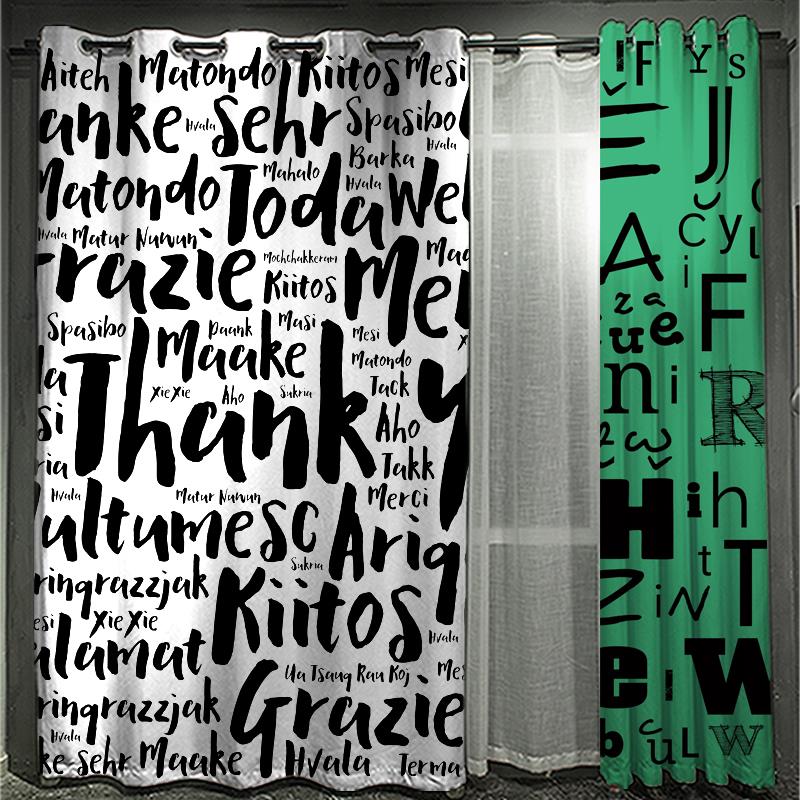 Aiteh Matondo Kiitos Mesi
anke Hvala Sehr Spasibo
Hvala
Mahalo Barka
Matondo Toda Hvala Wel
Hvala Matur Nuwun
razie Mochchakkeram Maa
Kiitos Me
Spasibo Daank Masi
Maake Mesi
Matondo
Thank y
Xie Xie Aho Sukria Tack
Aho
Takk
Hvala Matur Nuwun Merci
ultumesc Arig
Sukria
ringrazzjak Kiitos
esi Xie Xie
alamat Hvala
Ua Tsaug Rau Koj Me
ringrazzjak Grazie
Hvala
ke Sehr Maake Hvala Terma
! F Y S
E J
C y L
A i
z a F
u e
n i R
2 w
H i h
t
Z i N T
e i W
b c u L W